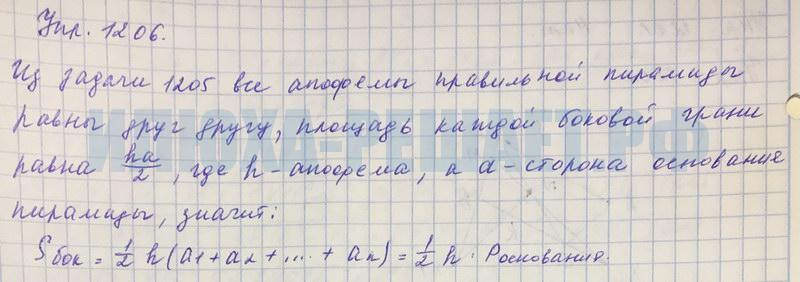 Упр. 1206.
Из задачи 1205 все апофемы правильной пирамиды
равны друг другу, площадь каждой боковой грани
равна ha/2, где h - апофема, а a - сторона основание
пирамиды, значит:
Sбок = 1/2 h (a1 + a2 + .... + an) = 1/2 h · Pоснования.